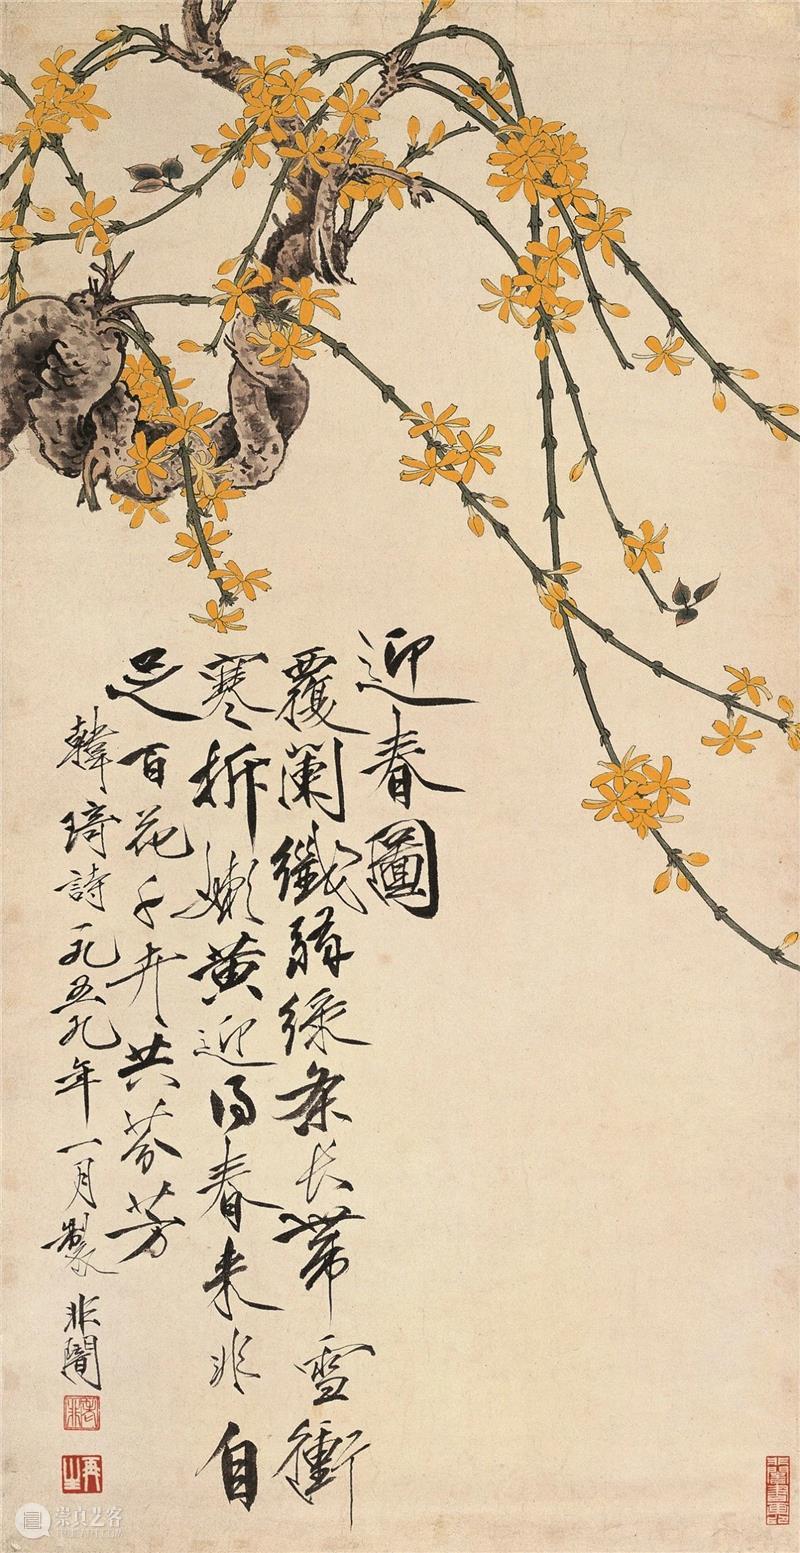 迎春圖
覆闌纖弱綠条长帶雪衝
寒拆嫩黄迎得春来非自
足百花千卉共芬芳
韓琦詩一九五九年一月製非闇
崇真艺客